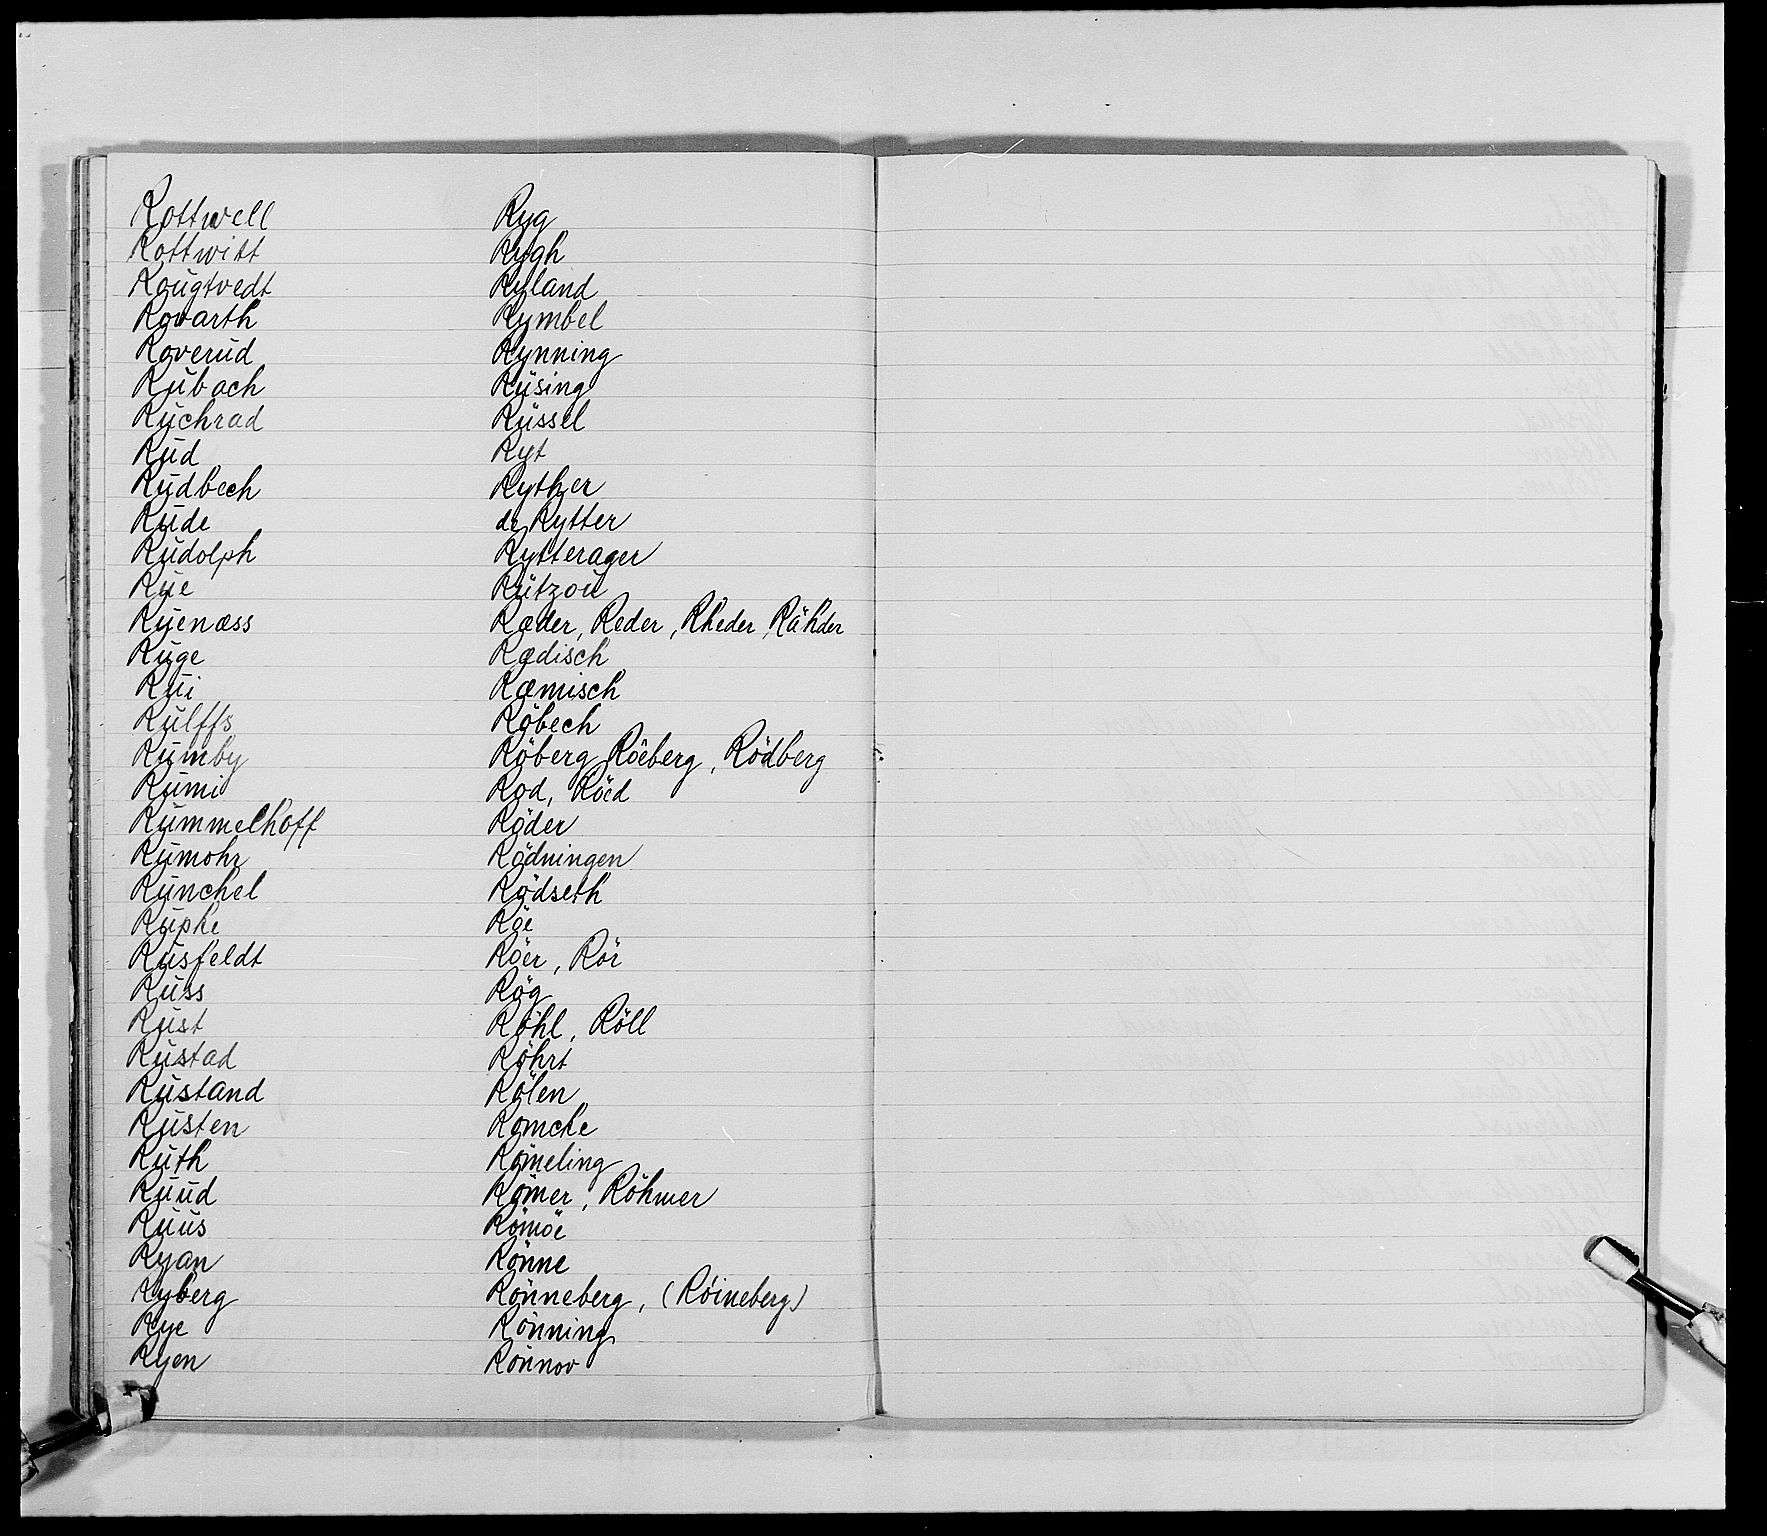 Rottwell
Rottwitt
Rougtvedt
Rovarth
Roverud
Rubach
Ruchrad
Rud
Rudbech
Rude
Rudolph
Rue
Ruenæss
Ruge
Rui
Rulffs
Rumby
Rumi
Rummelhoff
Rumohr
Runchel
Rupke
Rusfeldt
Russ
Rust
Rustad
Rustand
Rusten
Ruth
Ruud
Ruus
Ryan
Ryberg
Rye
Ryen
Ryg
Rygh
Ryland
Rymbel
Rynning
Rüsing
Rüssel
Ryt
Ryther
de Rytter
Rytterager
Rützou
Ræder, Reder, Rheder, Rähder
Rædisch
Ræmisch
Röbech
Röberg, Röeberg, Rödberg
Rød, Röed
Röder
Rödningen
Rödseth
Röe
Röer, Rör
Røg
Röhl, Röll
Röhrt
Rölen
Rømcke
Römeling
Römer, Röhmer
Römöe
Rönne
Rönneberg, (Röineberg)
Rönning
Rönnov